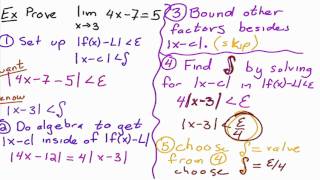 Ex Prove lim 4x-7=5
x→3
① Set up |f(x)-L|<ε
|x-c|<δ
want
|4x-7-5|<ε
know
|x-3|<δ
② Do algebra to get
|x-c| inside of |f(x)-L|
|4x-12|=4|x-3|
③ Bound other
factors besides
|x-c|. (skip)
④ Find δ by solving
for |x-c| in |f(x)-L|<ε
4|x-3|<ε
|x-3|<ε/4
⑤ choose δ = value
from ④
choose δ=ε/4